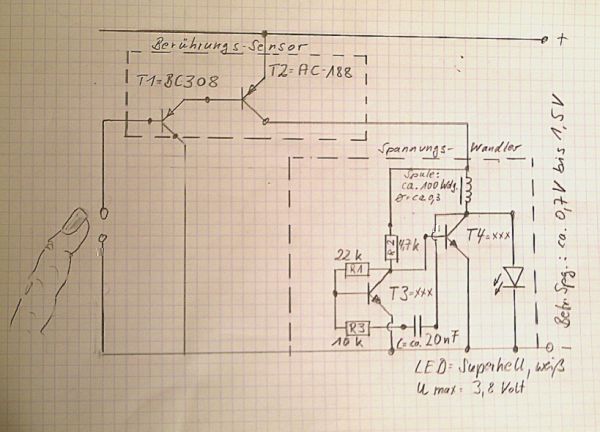 +
Berührungs-Sensor
T1=BC308
T2=AC-188
Betr.Spg.: ca. 0,7V bis 1,5V
Spannungs-Wandler
Spule:
ca. 100 Wdg.
ca. 0,3
R2
4,7k
T4=xxx
22k
R1
T3=xxx
R3
10k
C=ca. 20nF
LED= Superhell, weiß
U max= 3,8 Volt
-